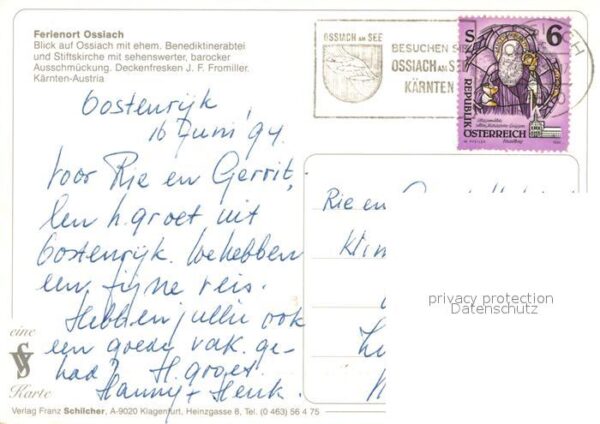 Ferienort Ossiach
Blick auf Ossiach mit ehem. Benediktinerabtei
und Stiftskirche mit sehenswerter, barocker
Ausschmückung. Deckenfresken J. F. Fromiller.
Kärnten-Austria
OSSIACH AM SEE
BESUCHEN SIE
OSSIACH AM SEE
KÄRNTEN
S 6
REPUBLIK
ÖSTERREICH
Oostenrijk
16 Juni '94.
Voor Rie en Gerrit,
Een h. groet uit
Oostenrijk. We hebben
een fijne reis.
Hebben jullie ook
een goede vak. ge-
had? H. groet.
Hanny + Henk.
Rie en
privacy protection
Datenschutz
eine
Karte
Verlag Franz Schilcher, A-9020 Klagenfurt, Heinzgasse 6, Tel. (0 463) 56 4 75